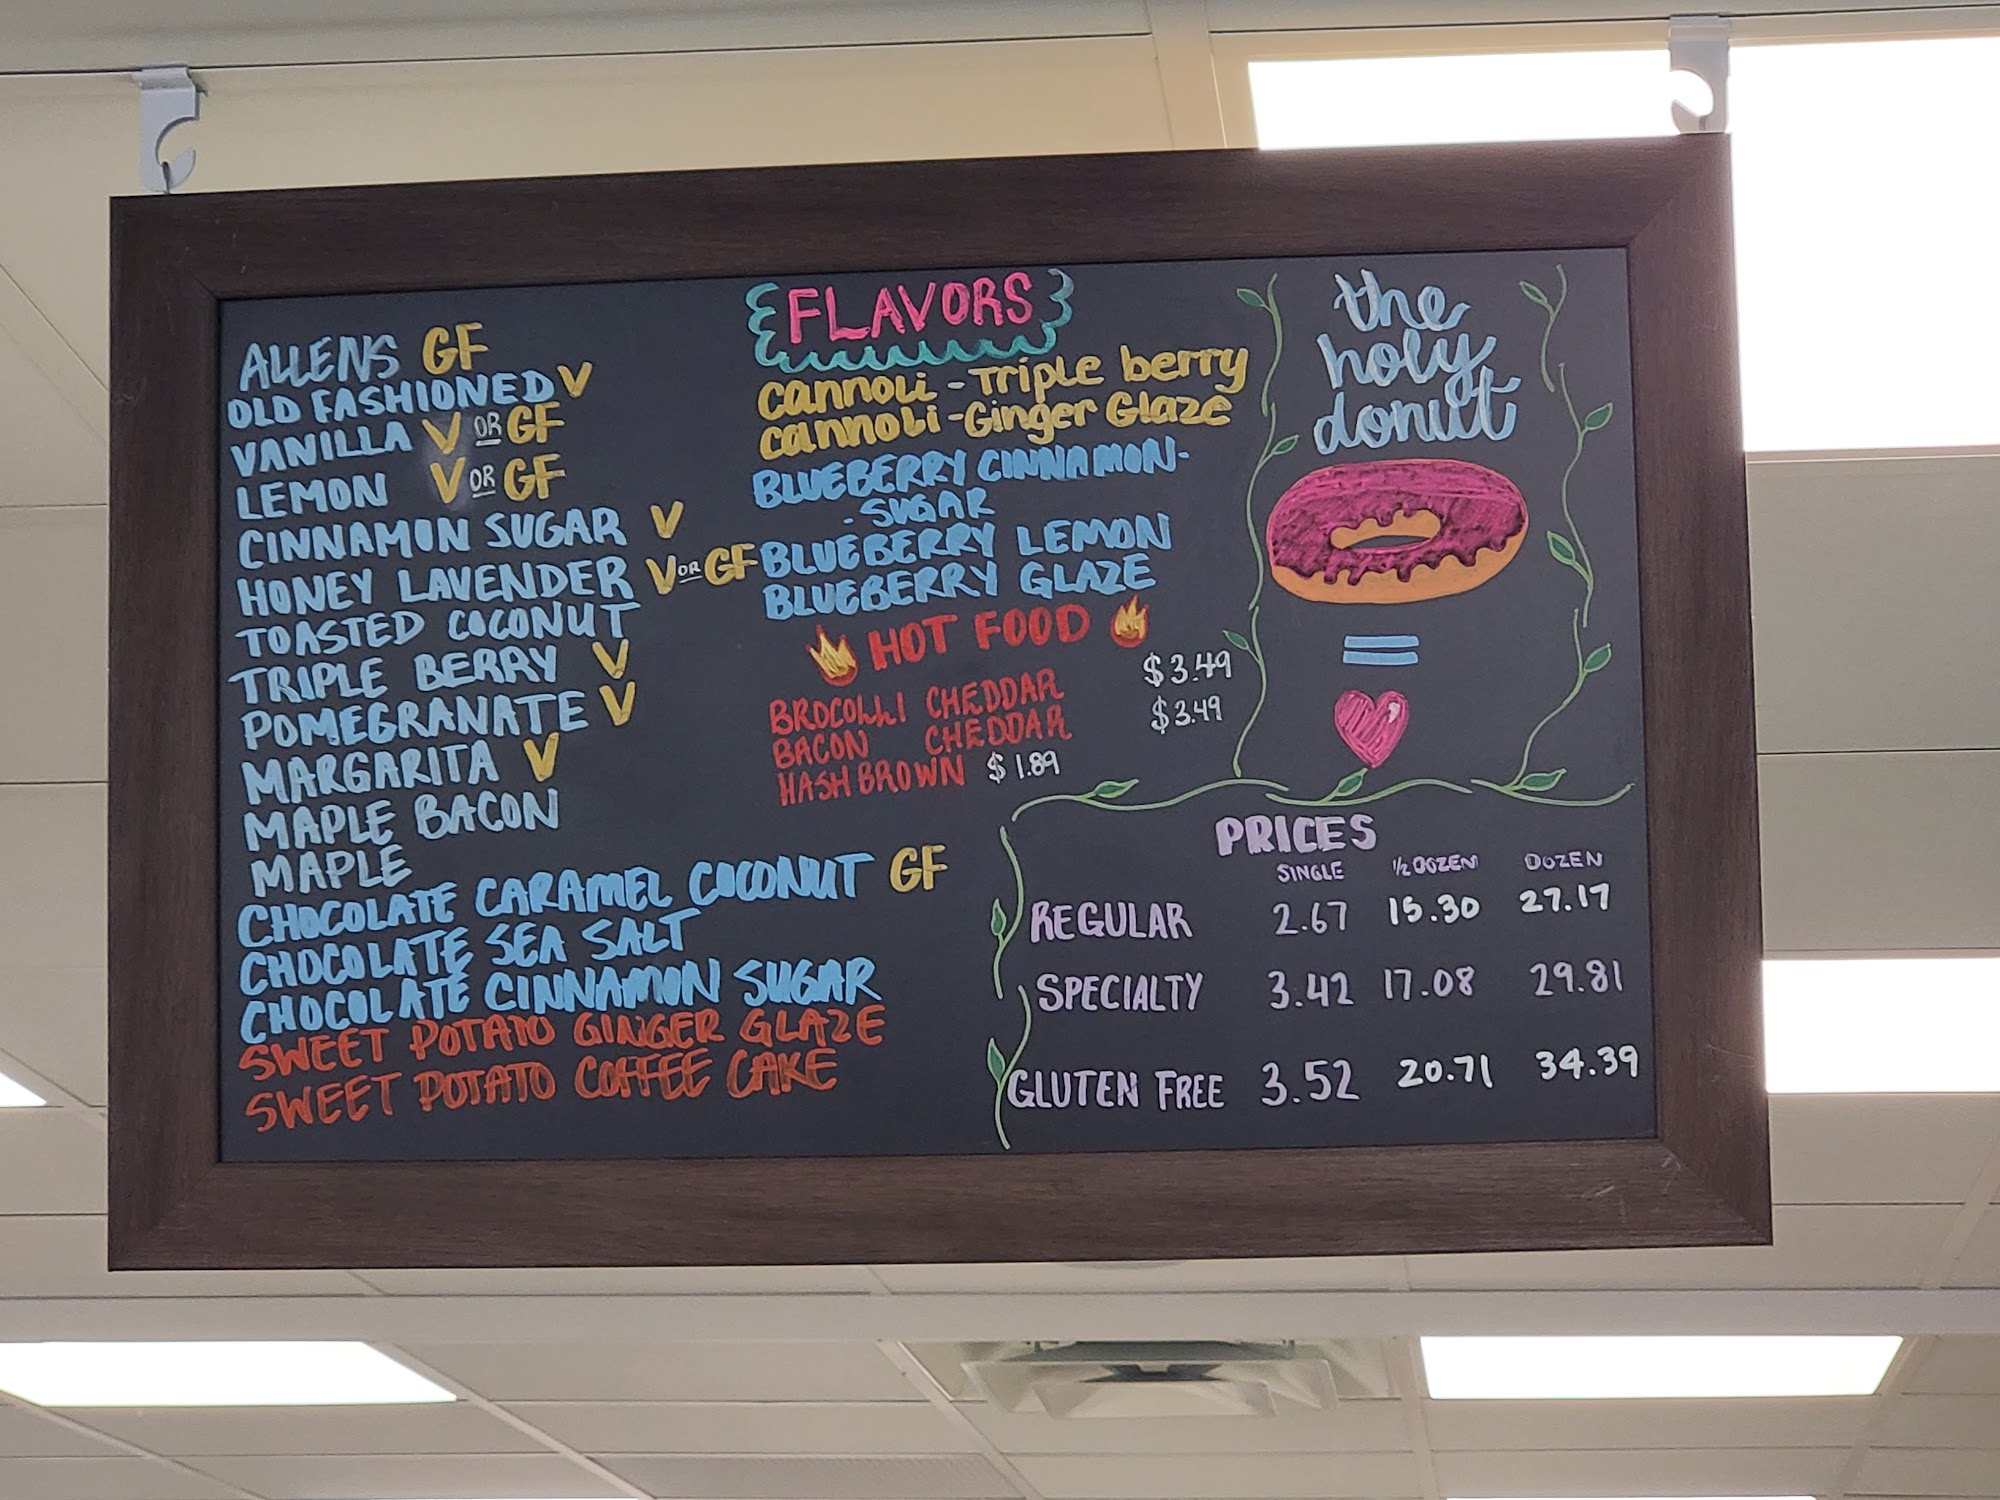 ALLENS GF
OLD FASHIONED V
VANILLA V OR GF
LEMON V OR GF
CINNAMON SUGAR V
HONEY LAVENDER V OR GF
TOASTED COCONUT
TRIPLE BERRY V
POMEGRANATE V
MARGARITA V
MAPLE BACON
MAPLE
CHOCOLATE CARAMEL COCONUT GF
CHOCOLATE SEA SALT
CHOCOLATE CINNAMON SUGAR
SWEET POTATO GINGER GLAZE
SWEET POTATO COFFEE CAKE
FLAVORS
cannoli - Triple berry
cannoli - Ginger Glaze
BLUEBERRY CINNAMON-
- SUGAR
BLUEBERRY LEMON
BLUEBERRY GLAZE
HOT FOOD
BROCOLLI CHEDDAR $3.49
BACON CHEDDAR $3.49
HASH BROWN $1.89
the
holy
donut
=
PRICES
SINGLE 1/2 DOZEN DOZEN
REGULAR 2.67 15.30 27.17
SPECIALTY 3.42 17.08 29.81
GLUTEN FREE 3.52 20.71 34.39